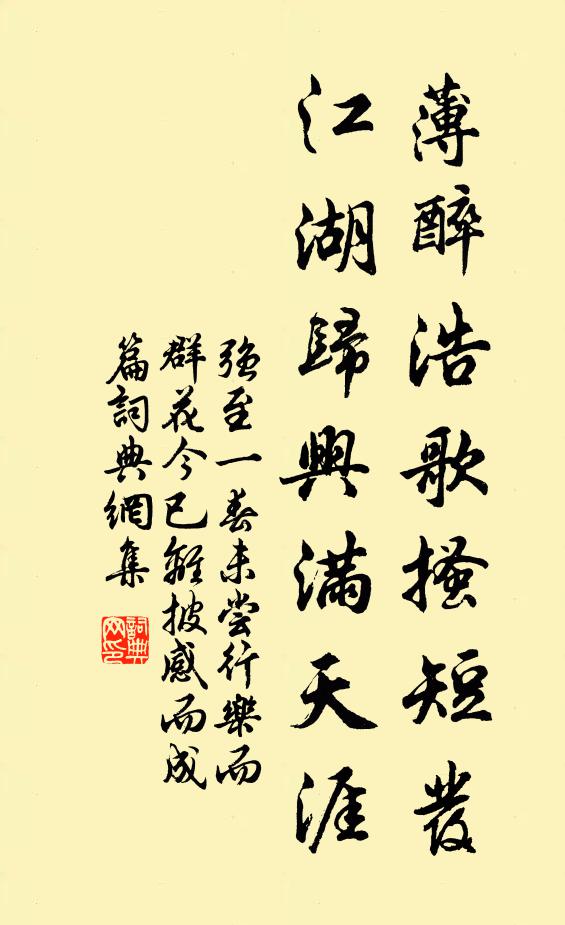 薄醉浩歌搔短發
江湖歸興滿天涯
強至一春未嘗行樂而
群花今已離披感而成
篇詞典網集
詞典
网印